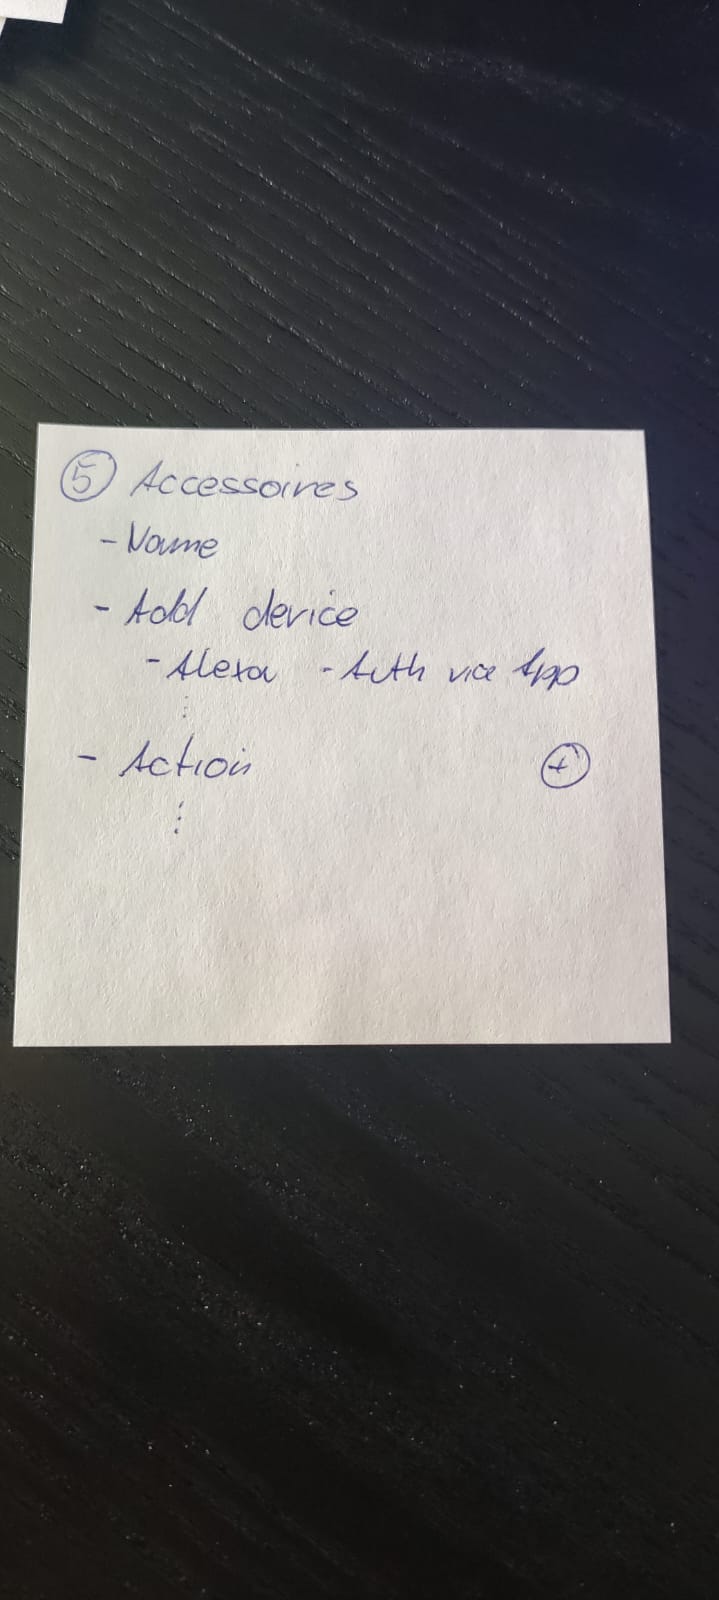 ⑤ Accessoires
- Name
- Add device
- Alexa - Auth via App
⋮
- Action ⊕
⋮